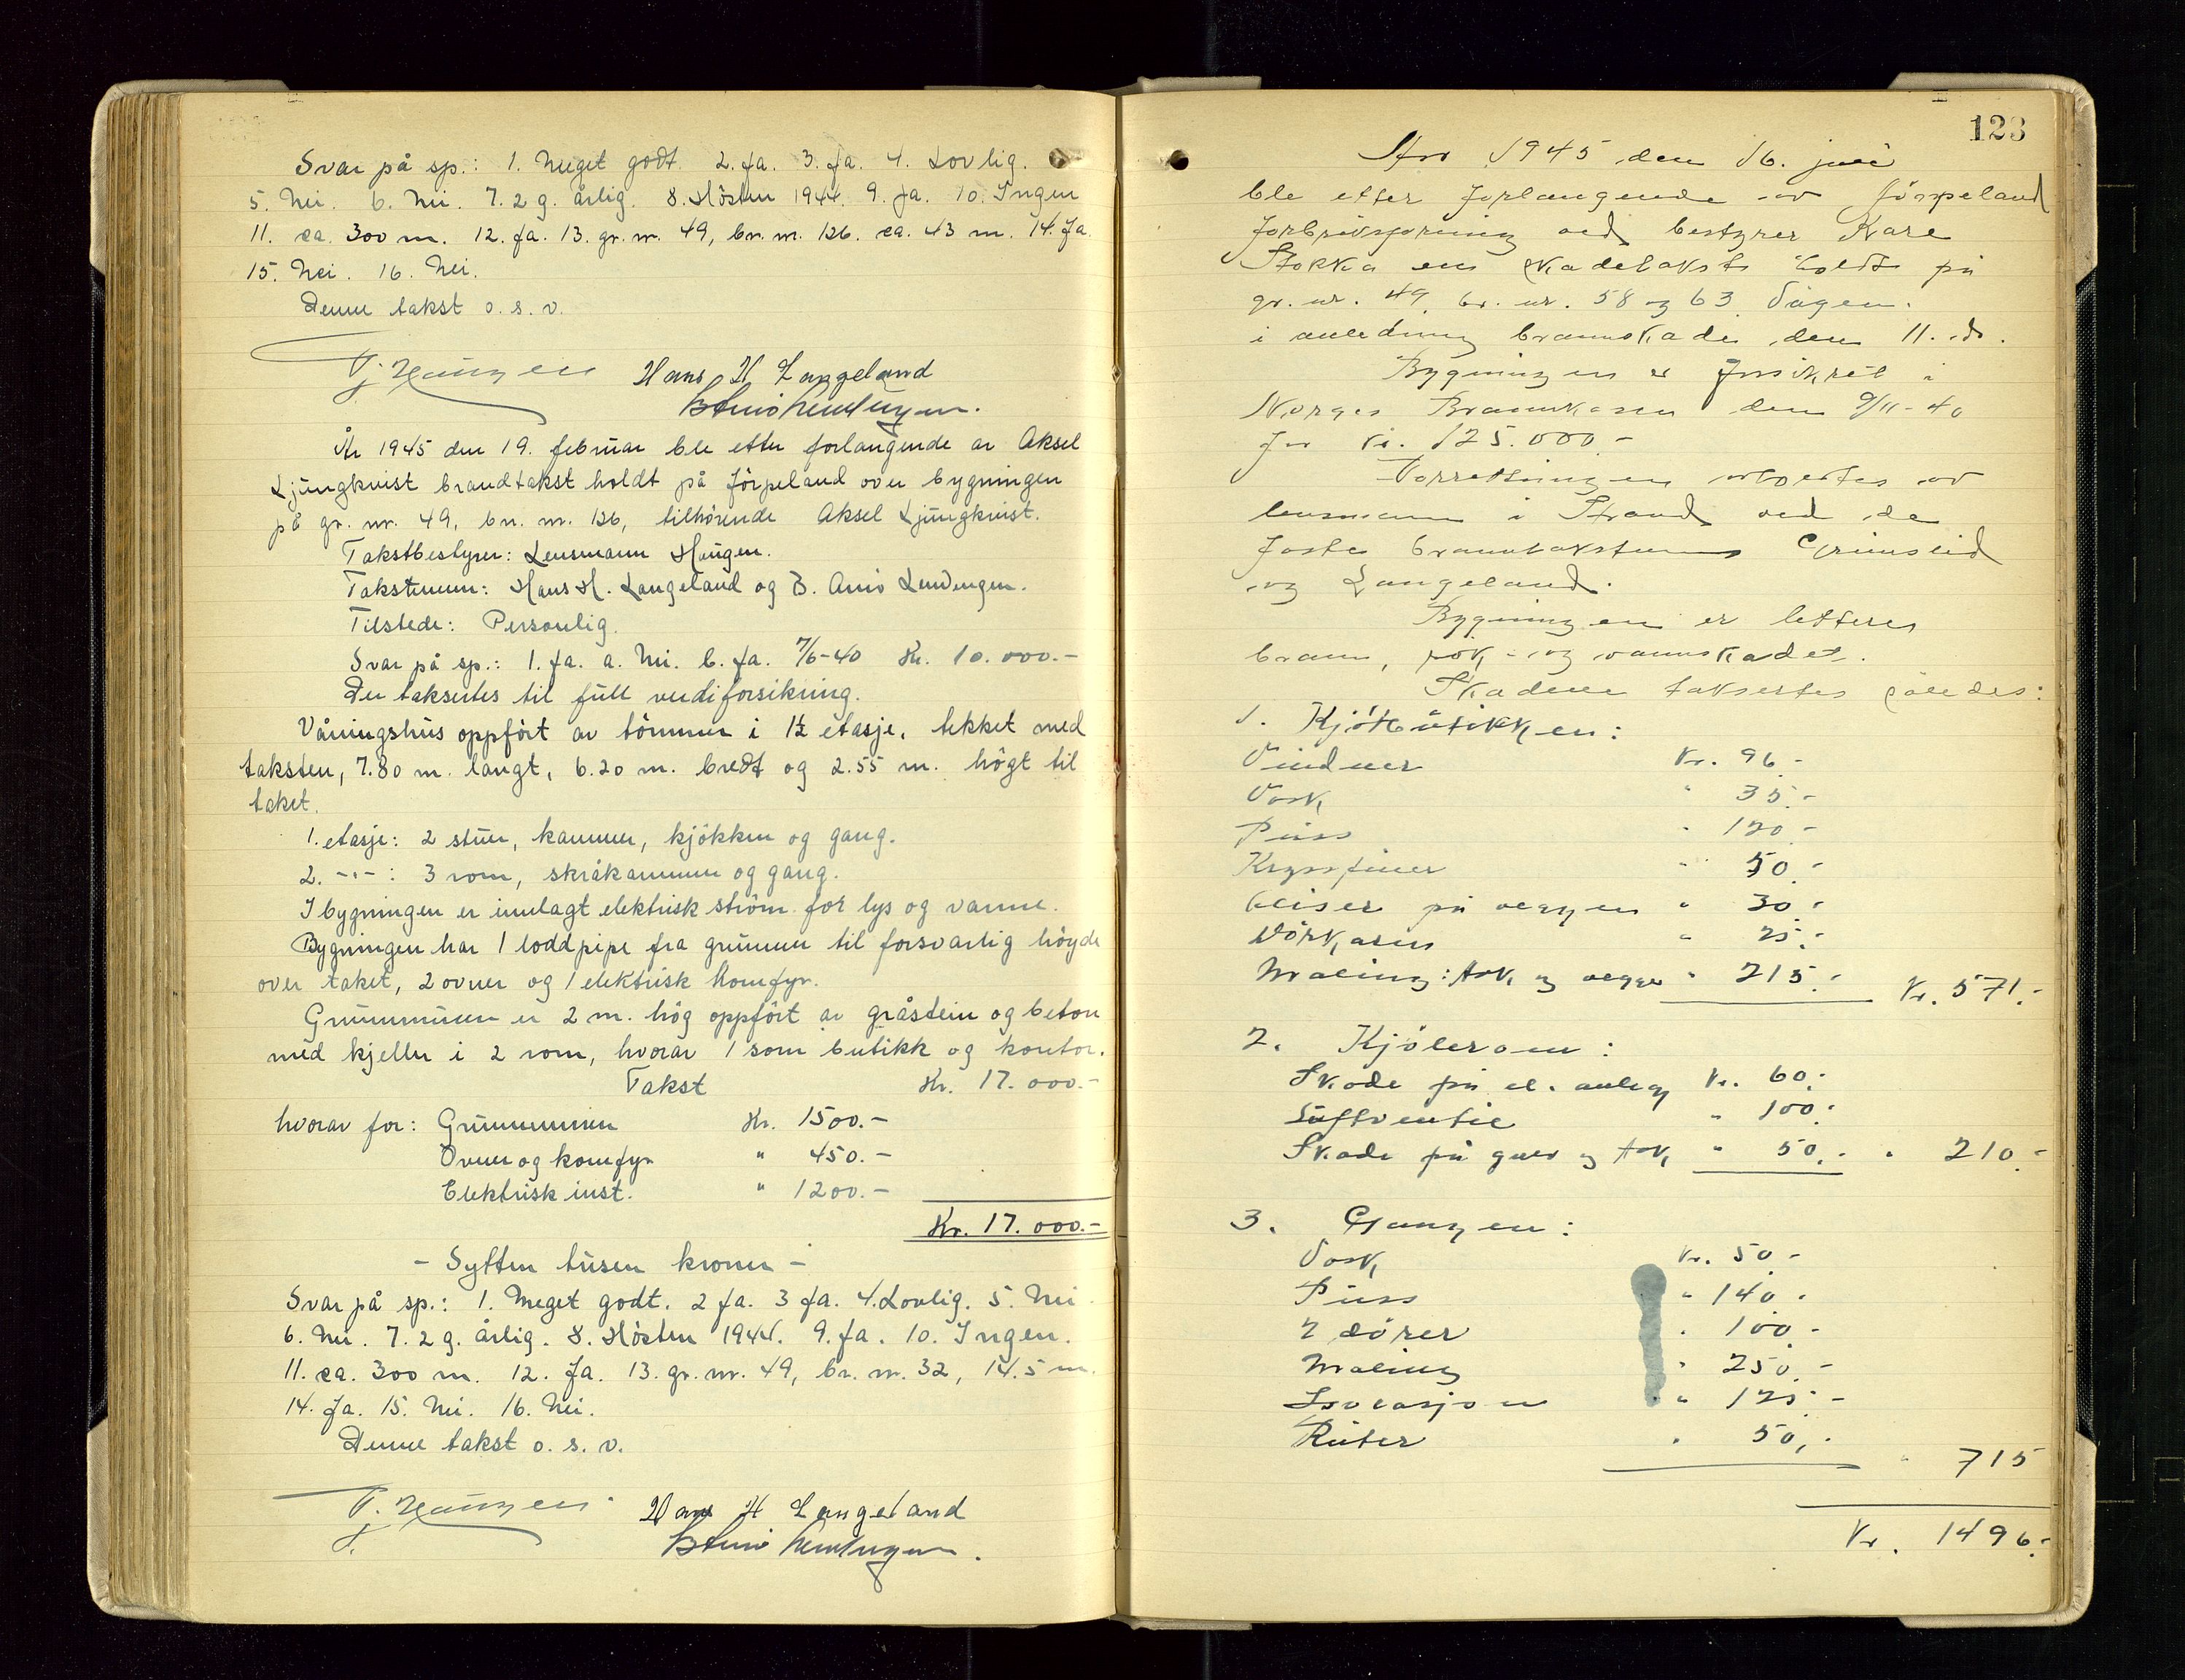 Svar på sp.: 1. Meget godt. 2. Ja. 3. Ja. 4. Lovlig.
5. Nei. 6. Nei. 7. 2 g. årlig. 8. Høsten 1944. 9. Ja. 10. Ingen
11. ca. 300 m. 12. Ja. 13. gr. nr. 49, br. nr. 126. ca. 43 m. 14. Ja.
15. Nei. 16. Nei.
Denne takst o. s. v.
T. Haugen Hans H Langeland
B Amio Lendengen.
År 1945 den 19. februar ble etter forlangende av Aksel
Ljungkvist brandtakst holdt på Jørpeland over bygningen
på gr. nr. 49, bn. nr. 126, tilhørende Aksel Ljungkvist.
Takstbestyrer: Lensmann Haugen.
Takstmenn: Hans H. Langeland og B. Amio Lendengen.
Tilstede: Personlig.
Svar på sp.: 1. Ja. a. Nei. b. Ja. 7/6-40 Kr. 10.000.-
Der taksertes til full verdiforsikring.
Våningshus oppført av tömmer i 1½ etasje, tekket med
taksten, 7.80 m. langt, 6.20 m. bredt og 2.55 m. högt til
taket.
1. etasje: 2 stuer, kammer, kjökken og gang.
2. -"- : 3 rom, skråkammer og gang.
I bygningen er innlagt elektrisk ström for lys og varme.
Bygningen har 1 loddpipe fra grunnen til forsvarlig höyde
over taket, 2 ovner og 1 elektrisk komfyr.
Grunnmuren er 2 m. hög oppfört av gråstein og beton
med kjeller i 2 rom, hvorav 1 som butikk og kontor.
Takst Kr. 17.000.-
hvorav for: Grunnmuren Kr. 1500.-
Ovner og komfyr " 450.-
Elektrisk inst. " 1200.-
Kr. 17.000.-
- Sytten tusen kroner -
Svar på sp.: 1. Meget godt. 2 Ja. 3 Ja. 4. Lovlig. 5. Nei.
6. Nei. 7. 2 g. årlig. 8. Høsten 1944. 9. Ja. 10. Ingen.
11. ca. 300 m. 12. Ja. 13. gr. nr. 49, br. nr. 32, 14.5 m.
14. Ja. 15. Nei. 16. Nei.
Denne takst o. s. v.
T. Haugen Hans H Langeland
B Amio Lendengen.
123
År 1945 den 16. juli
ble etter forlangende av Jørpeland
forbruksforening ved bestyrer Kare
Stokka en skadetakst holdt på
gr. nr. 49 br. nr. 58 og 63 Vågen.
i anledning brannskade den 11. ds.
Bygningen er forsikret i
Norges Brannkasse den 9/11-40
for kr. 125.000.-
Forretningen utførtes av
lensmann i Strand ved de
faste branntakstmenn Grimslid
og Langeland.
Bygningen er lettere
brann, røk- og vannskadet.
Skadene taksertes således:
1. Kjøtbutikken:
Vinduer kr. 96.-
Vask " 35.-
Puss " 120.-
Kryssfiner " 50.-
Fliser på veggen " 30.-
Dörkarm " 25.-
Maling: tak og vegger " 215.- Kr. 571.-
2. Kjölerom:
Skade på el. anlegg kr. 60.-
Luftventil " 100.-
Skade på gulv og tak " 50.- " 210.-
3. Gangen:
Vask kr. 50.-
Puss " 140.-
2 dörer " 100.-
Maling " 250.-
Isolasjon " 125.-
Ruter " 50.-
" 715
Kr. 1496.-